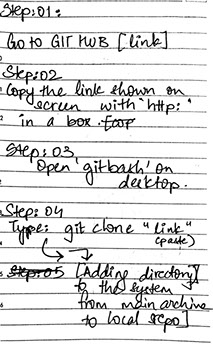 Step:01:
Go to GIT HUB [link]
Step:02
Copy the link shown on
screen with "http:"
in a box.
Step: 03
Open 'gitbash' on
desktop.
Step: 04
Type: git clone "link"
(paste)
Step:05 [Adding directory]
to the system
from main archive
to local repo]